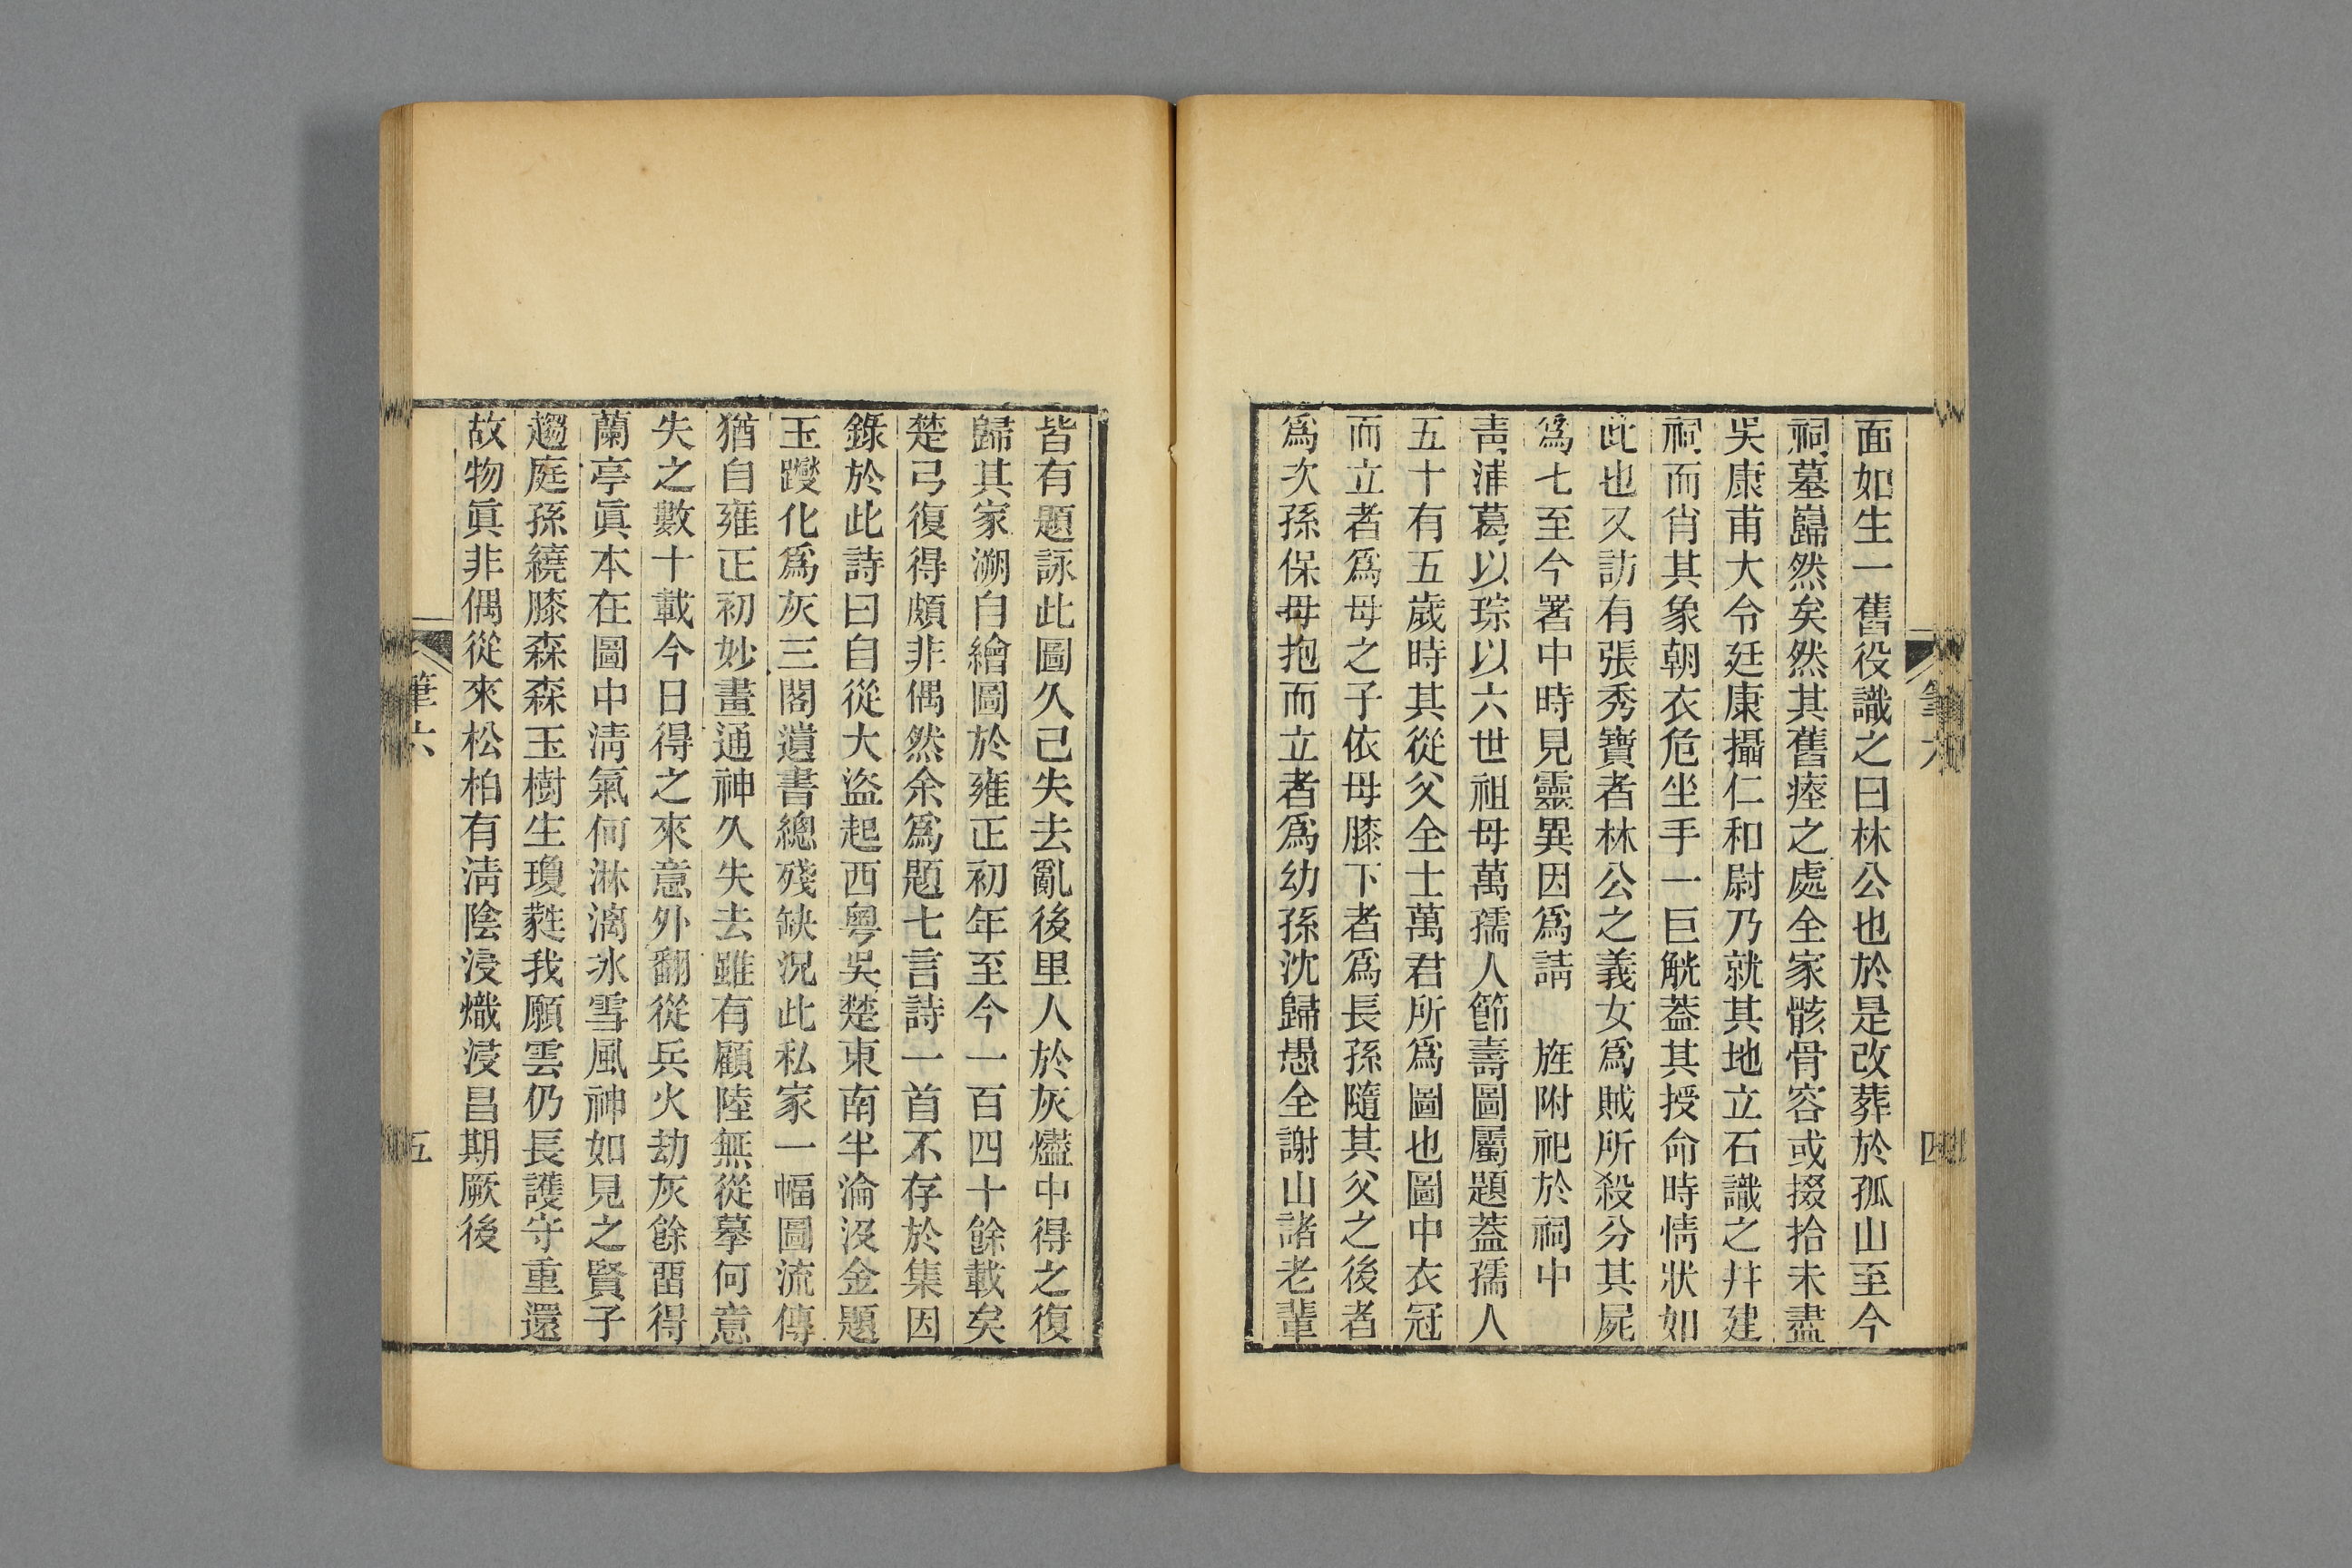 面如生一舊役識之曰林公也於是改葬於孤山至今
祠墓巋然矣然其舊瘞之處全家骸骨容或掇拾未盡
吳康甫大令廷康攝仁和尉乃就其地立石識之幷建
祠而肖其象朝衣危坐手一巨觥葢其授命時情狀如
此也又訪有張秀寶者林公之義女爲賊所殺分其屍
爲七至今署中時見靈異因爲請 旌附祀於祠中
靑浦葛以琮以六世祖母萬孺人節壽圖屬題葢孺人
五十有五歲時其從父全士萬君所爲圖也圖中衣冠
而立者爲母之子依母膝下者爲長孫隨其父之後者
爲次孫保母抱而立者爲幼孫沈歸愚全謝山諸老輩
筆六
四
皆有題詠此圖久已失去亂後里人於灰燼中得之復
歸其家溯自繪圖於雍正初年至今一百四十餘載矣
楚弓復得頗非偶然余爲題七言詩一首不存於集因
錄於此詩曰自從大盜起西粵吳楚東南半淪沒金題
玉躞化爲灰三閣遺書總殘缺況此私家一幅圖流傳
猶自雍正初妙畫通神久失去雖有顧陸無從摹何意
失之數十載今日得之來意外翻從兵火劫灰餘畱得
蘭亭眞本在圖中淸氣何淋漓冰雪風神如見之賢子
趨庭孫繞膝森森玉樹生瓊蕤我願雲仍長護守重還
故物眞非偶從來松柏有淸陰浸熾浸昌期厥後
筆六
五